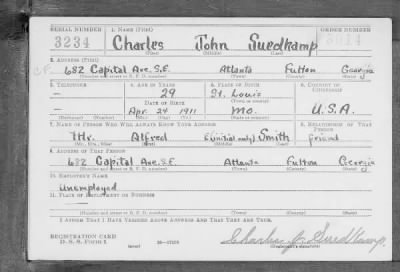 SERIAL NUMBER 1. NAME (Print) ORDER NUMBER
3234 Charles John Suedkamp
(First) (Middle) (Last)
2. ADDRESS (Print)
682 Capital Ave. S.E. Atlanta Fulton Georgia
(Number and street or R. F. D. number) (Town) (County) (State)
3. TELEPHONE 4. AGE IN YEARS 5. PLACE OF BIRTH 6. COUNTRY OF CITIZENSHIP
— 29 St. Louis
DATE OF BIRTH (Town or county)
— Apr. 24 1911 Mo. U.S.A.
(Mo.) (Day) (Yr.) (State or country)
7. NAME OF PERSON WHO WILL ALWAYS KNOW YOUR ADDRESS 8. RELATIONSHIP OF THAT PERSON
Mr. Alfred E (initial only) Smith friend
(Mr., Mrs., Miss) (First) (Middle) (Last)
9. ADDRESS OF THAT PERSON
682 Capital Ave. S.E. Atlanta Fulton Georgia
(Number and street or R. F. D. number) (Town) (County) (State)
10. EMPLOYER'S NAME
Unemployed
11. PLACE OF EMPLOYMENT OR BUSINESS
—
(Number and street or R. F. D. number) (Town) (County) (State)
I AFFIRM THAT I HAVE VERIFIED ABOVE ANSWERS AND THAT THEY ARE TRUE.
REGISTRATION CARD
D. S. S. Form 1 (over) Charles J. Suedkamp
(Registrant's signature)